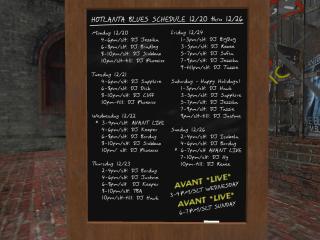 HOTLANTA BLUES SCHEDULE 12/20 thru 12/26
Monday 12/20
4-6pm/slt: DJ Jessika
6-8pm/slt: DJ Bradley
8-10pm/slt: DJ Siobhan
10pm/slt-till: DJ Phoenix
Tuesday 12/21
4-6pm/slt: DJ Sapphire
6-8pm/slt: DJ Dick
6-8pm/slt: DJ Siobhan
8-10pm/slt: DJ Cliff
10pm-till: DJ Phoenix
Wednesday 12/22
* 3-4pm/slt: AVANT LIVE
4-6pm/slt: DJ Keeper
6-8pm/slt: DJ Bordoy
8-10pm/slt: DJ Siobhan
10pm/slt: DJ Phoenix
Thursday 12/23
2-4pm/slt: DJ Bordoy
4-6pm/slt: DJ Justine
6-8pm/slt: DJ Keeper
8-10pm/slt: TBA
10pm/slt-till: DJ Huck
Friday 12/24
1-3pm/slt: DJ
3-5pm/slt: DJ
5-7pm/slt: DJ
7-9pm/slt: DJ Jessika
9-11pm/slt: DJ
Saturday - Happy Holidays!
1-3pm/slt: DJ Huck
3-5pm/slt: DJ
5-7pm/slt: DJ Jessika
7-9pm/slt: DJ
9pm/slt-till: DJ Justine
Sunday 12/26
2-4pm/slt: DJ Isabela
4-6pm/slt: DJ Bordoy
* 6-7pm/slt: AVANT LIVE
7-10pm/slt: DJ
10-till: DJ Keeper
AVANT *LIVE*
3-4PM/SLT WEDNESDAY
AVANT *LIVE*
6-7PM/SLT SUNDAY